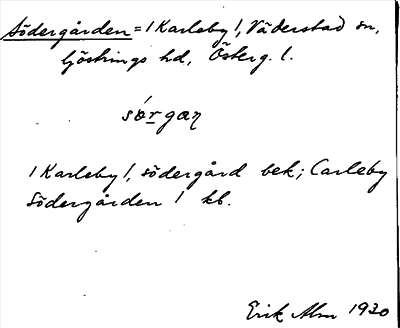 Södergården = /Karleby/, Väderstad sn,
Göstrings hd, Österg. l.
sǿrgaɲ
/Karleby/, södergård bek; Carleby
Södergården / kb.
Erik Alm 1930